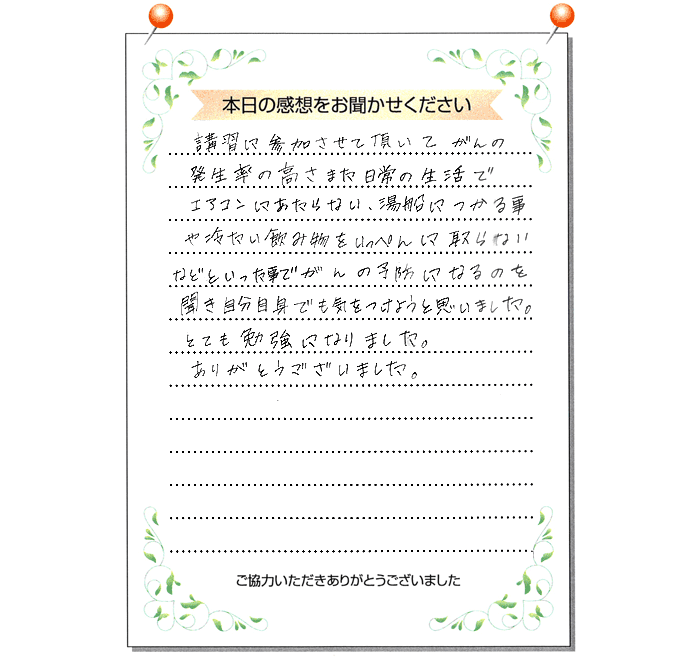 本日の感想をお聞かせください
講習に参加させて頂いてがんの
発生率の高さまた日常の生活で
エアコンにあたらない、湯船につかる事
や冷たい飲み物をいっぺんに取らない
などといった事でがんの予防になるのを
聞き自分自身でも気をつけようと思いました。
とても勉強になりました。
ありがとうございました。
ご協力いただきありがとうございました